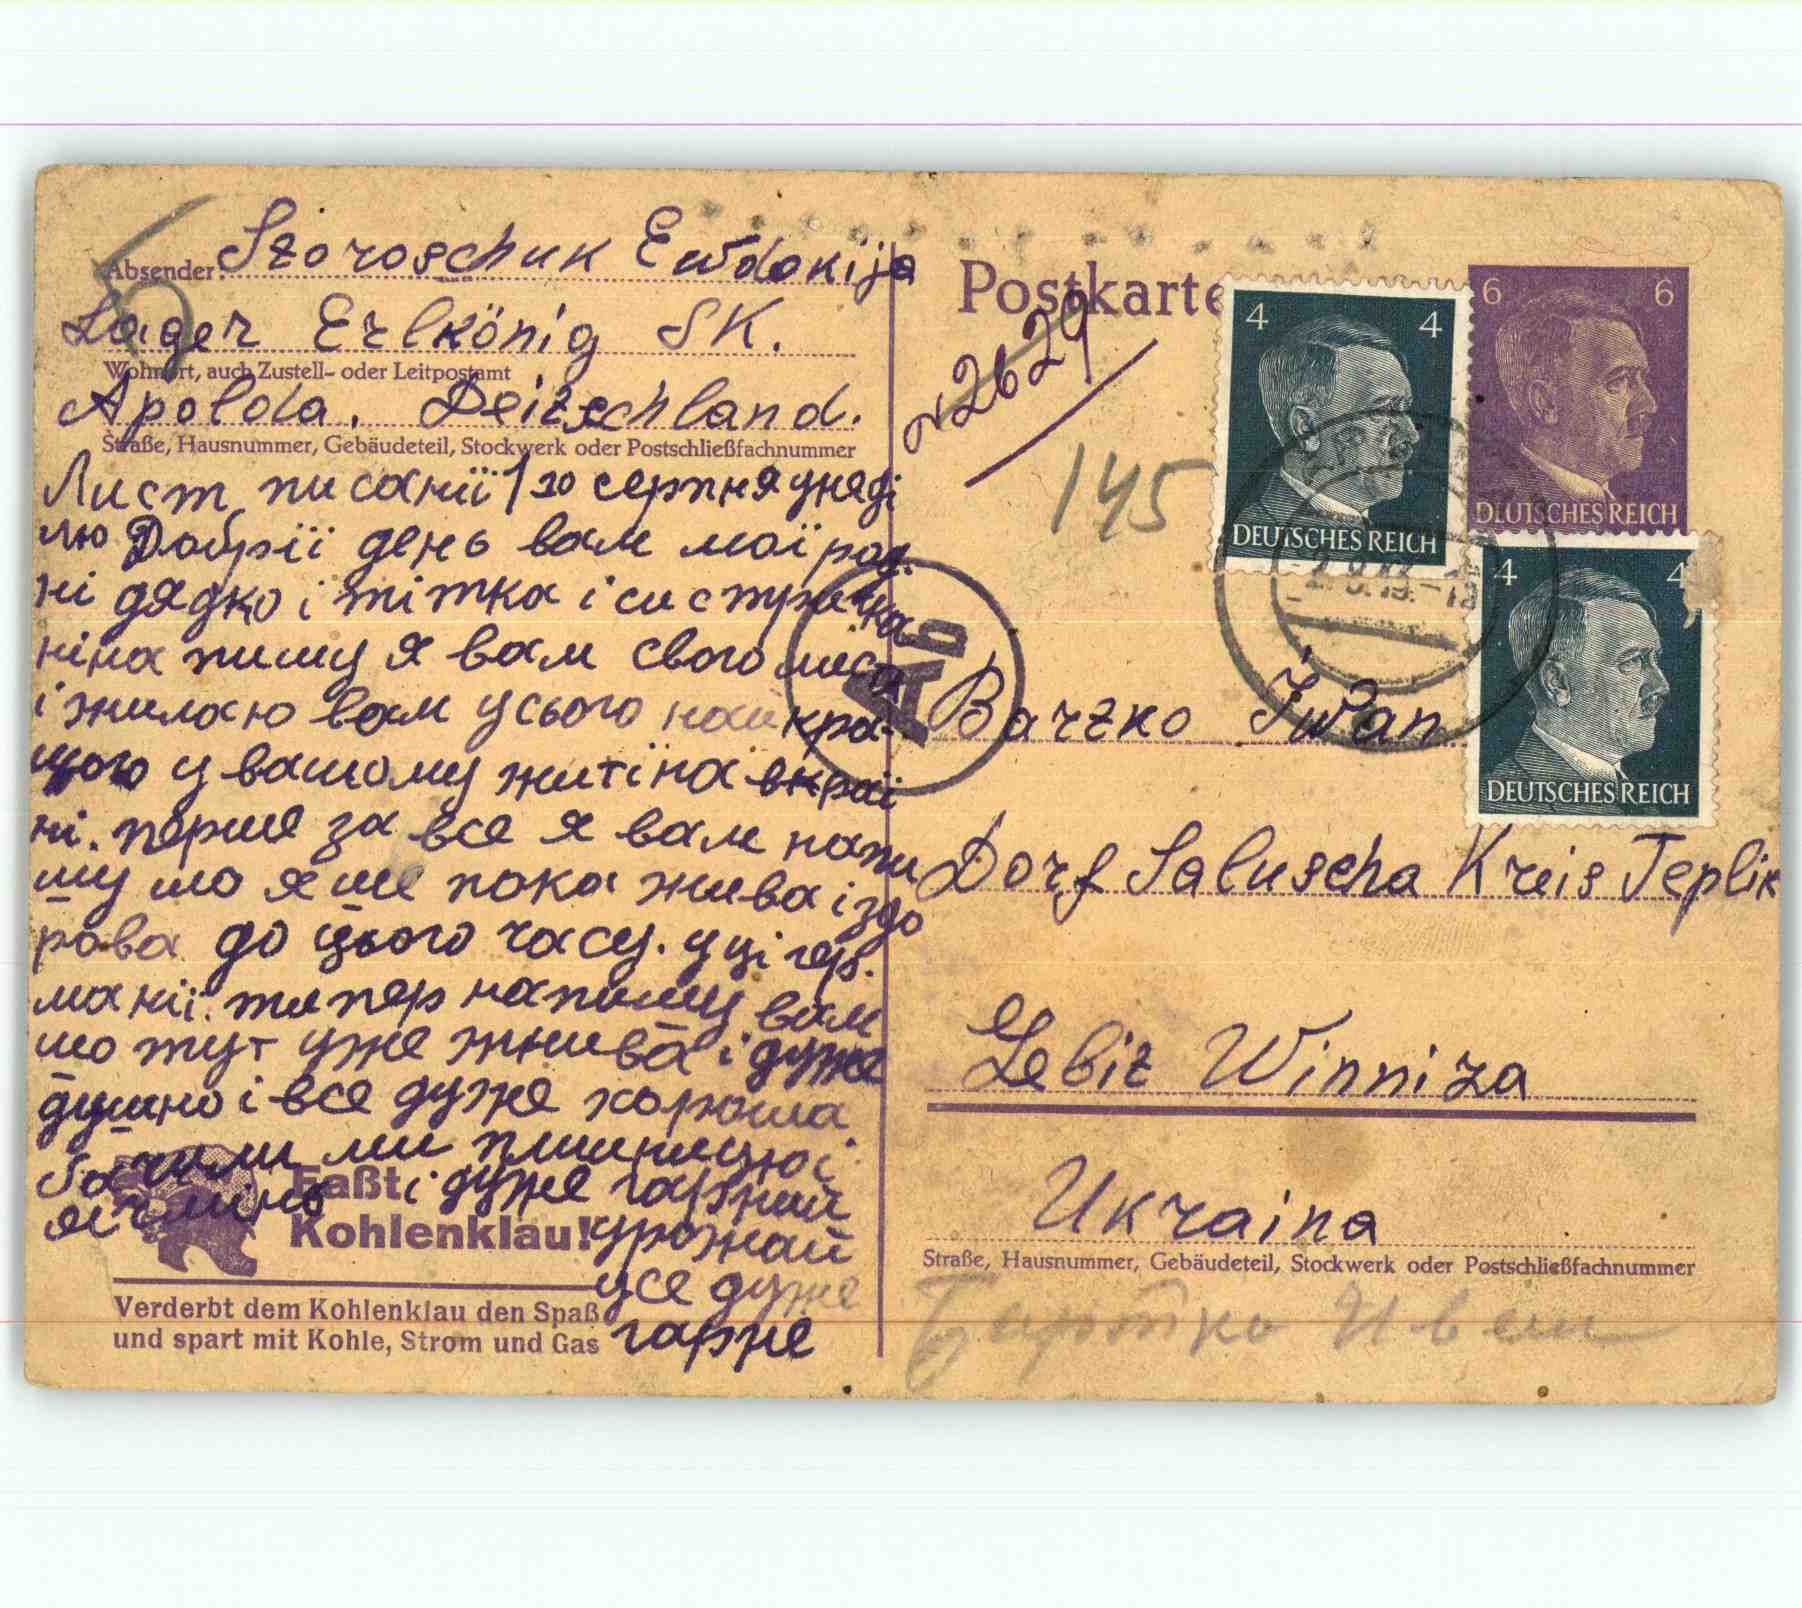 Absender: Storoschuk Ewdokija
Lager Erlkönig SK.
Wohnort, auch Zustell- oder Leitpostamt
Apolda. Deitschland.
Straße, Hausnummer, Gebäudeteil, Stockwerk oder Postschließfachnummer
Лист писанії 1/30 серпня унеді
лю Добрії день вам мої род.
ні дядко і тітка і систричка
ніна пишу я вам свого листа
і жилаю вам усього найкра-
щого у вашому житі на вкраї
ні. перше за все я вам напи
шу шо я ше пока жива і здо
рова до цього часу. у ці гер.
манії. типер напишу вам
шо тут уже жнива і дуже
душно і все дуже хороша
бачили ми пшиницю і
ячмінь і дуже гарний
урожай
усе дуже
гарне
Faßt
Kohlenklau!
Verderbt dem Kohlenklau den Spaß
und spart mit Kohle, Strom und Gas
Postkarte
N2629
145
Ab
4 4
DEUTSCHES REICH
6 6
DEUTSCHES REICH
4 4
DEUTSCHES REICH
Bartko Iwan
Dorf Saluscha Kreis Teplik
Gebit Winniza
Ukraina
Straße, Hausnummer, Gebäudeteil, Stockwerk oder Postschließfachnummer
Бартко Иван